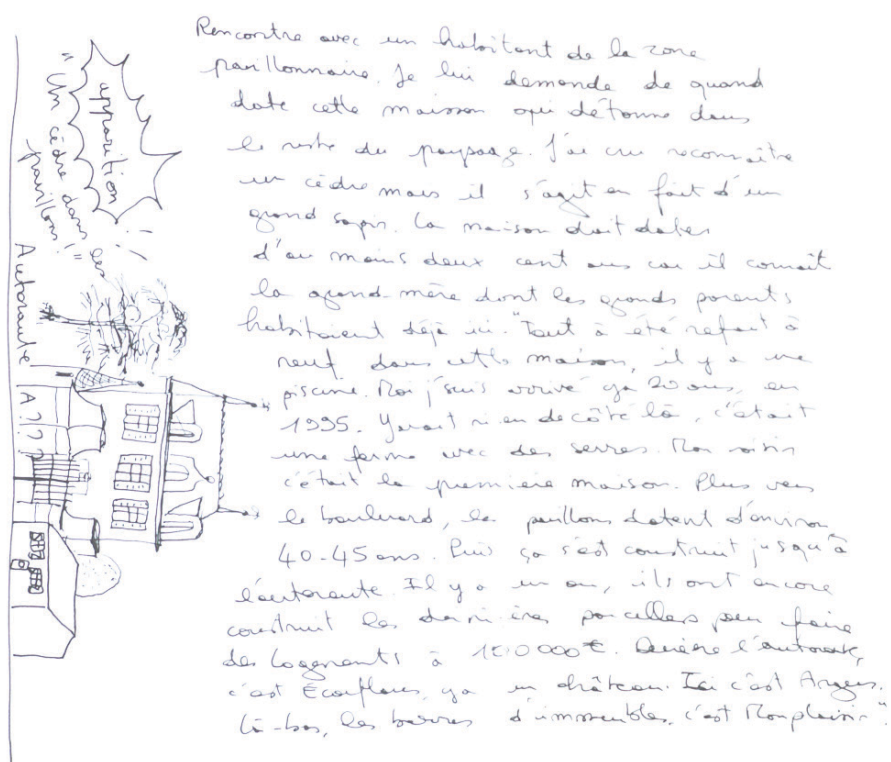 Rencontre avec un habitant de la zone
pavillonnaire. Je lui demande de quand
date cette maison qui détonne dans
le reste du paysage. J'ai cru reconnaître
un cèdre mais il s'agit en fait d'un
grand sapin. La maison doit dater
d'au moins deux cent ans car il connaît
la grand-mère dont les grands parents
habitaient déjà ici. "Tout à été refait à
neuf dans cette maison, il y a une
piscine. Moi j'suis arrivé ya 20 ans, en
1995. Y avait rien de côté là, c'était
une ferme avec des serres. Mon voisin
c'était la première maison. Plus vers
le boulevard, les pavillons datent d'environ
40-45 ans. Puis ça s'est construit jusqu'à
l'autoroute. Il y a un an, ils ont encore
construit les dernières parcelles pour faire
des logements à 000€. Derrière l'autoroute,
c'est Écouflant, ya un château. Ici c'est Angers.
Là-bas, les barres d'immeubles, c'est Monplaisir".
apparition
"Un cèdre dans les
pavillons!"
Autoroute A???